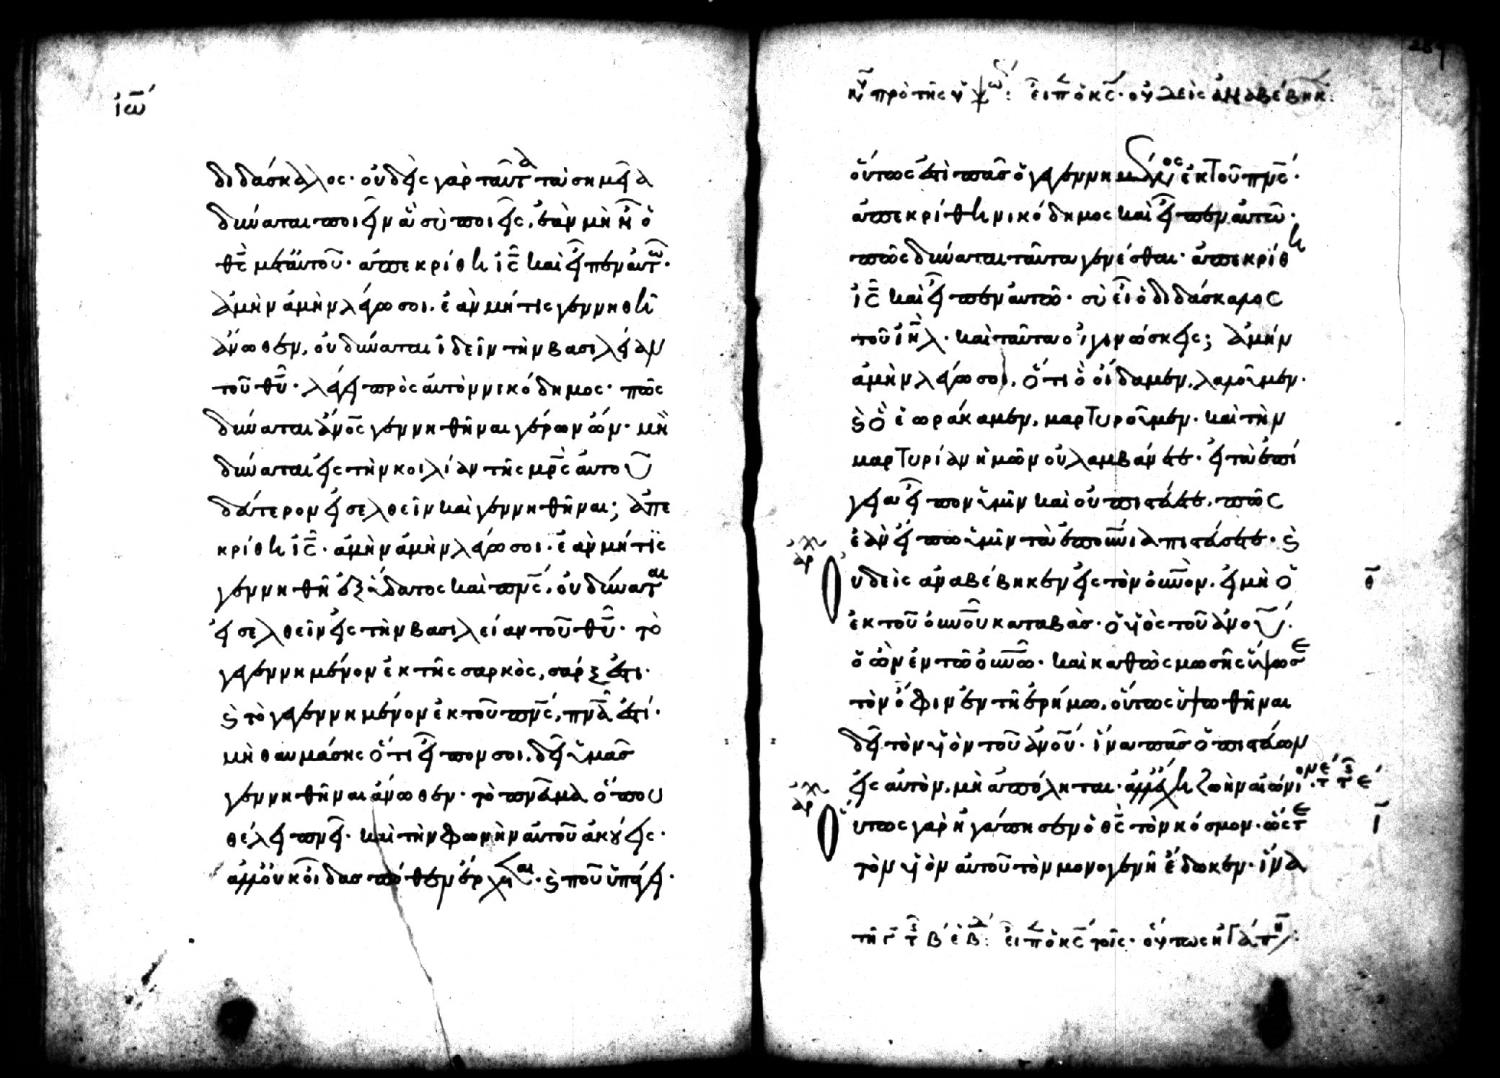 ἰω
διδάσκαλος· οὐδεὶς γὰρ ταῦτα τὰ σημεῖα
δύναται ποιεῖν ἃ σὺ ποιεῖς, ἐὰν μὴ ἦ ὁ
θς μετ αὐτοῦ· ἀπεκρίθη ις καὶ εἶπεν αὐτῶ·
ἀμὴν ἀμὴν λέγω σοι. ἐὰν μή τις γεννηθῆ
ἄνωθεν, οὐ δύναται ἰδεῖν τὴν βασιλείαν
τοῦ θυ· λέγει πρὸς αὐτὸν νικόδημος· πῶς
δύναται ἄνος γεννηθῆναι γέρων ὤν· μὴ
δύναται εἰς τὴν κοιλίαν τῆς μρς αὐτοῦ
δεύτερον εἰσελθεῖν καὶ γεννηθῆναι; ἀπε
κρίθη ις· ἀμὴν ἀμὴν λέγω σοι. ἐὰν μή τις
γεννηθῆ ἐξ ὕδατος καὶ πνς, οὐ δύναται
εἰσελθεῖν εἰς τὴν βασιλείαν τοῦ θυ· τὸ
γεγεννημένον ἐκ τῆς σαρκὸς, σάρξ ἐστι·
ϗ τὸ γεγεννημένον ἐκ τοῦ πνς, πνα ἐστί·
μὴ θαυμάσης ὅτι εἶπον σοι. δεῖ ὑμᾶς
γεννηθῆναι ἄνωθεν· τὸ πνεῦμα ὅπου
θέλει πνεῖ· καὶ τὴν φωνὴν αὐτοῦ ἀκούεις·
ἀλλ οὐκ οἶδας πόθεν ἔρχεται· ϗ ποῦ ὑπάγει·
κυ πρὸ τῆς ὑψω: εἶπ ὁ κς· οὐδεὶς ἀναβέβηκ:
οὕτως ἐστὶ πᾶς ὁ γεγεννημένος ἐκ τοῦ πνς·
ἀπεκρίθη νικόδημος καὶ εἶπεν αὐτῶ·
πῶς δύναται ταῦτα γενέσθαι· ἀπεκρίθη
ις καὶ εἶπεν αὐτῶ· σὺ εἶ ὁ διδάσκαλος
τοῦ ιηλ· καὶ ταῦτα οὐ γινώσκεις; ἀμὴν
ἀμὴν λέγω σοι, ὅτι ὃ οἴδαμεν, λαλοῦμεν·
ϗ ὃ ἑωράκαμεν, μαρτυροῦμεν· καὶ τὴν
μαρτυρίαν ἡμῶν οὐ λαμβάνετε· εἰ τὰ ἐπί
γεια εἶπον ὑμῖν καὶ οὐ πιστεύετε, πῶς
ἐὰν εἴπω ὑμῖν τὰ ἐπουνια πιστεύσετε· ϗ
αρ
οὐδεὶς ἀναβέβηκεν εἰς τὸν οὐνον. εἰ μὴ ὁ
θ
ἐκ τοῦ οὐνου καταβάς· ὁ υἱὸς τοῦ ἀνου·
ὁ ὢν ἐν τῶ οὐνω· καὶ καθὼς μωσῆς ὕψωσε
τὸν ὄφιν ἐν τῆ ἐρήμω, οὕτως ὑψωθῆναι
δεῖ τὸν υἱὸν τοῦ ἀνου· ἵνα πᾶς ὁ πιστεύων
εἰς αὐτὸν, μὴ ἀπόληται· ἀλλ ἔχη ζωὴν αἰώνιον·
αρ
οὕτως γὰρ ἠγάπησεν ὁ θς τὸν κόσμον· ὥστε
ι
τὸν υἱὸν αὐτοῦ τὸν μονογενῆ ἔδωκεν· ἵνα
τῆ γ τ β ἑβ: εἶπ ὁ κς τοῖς· οὕτως ἠγάπη: